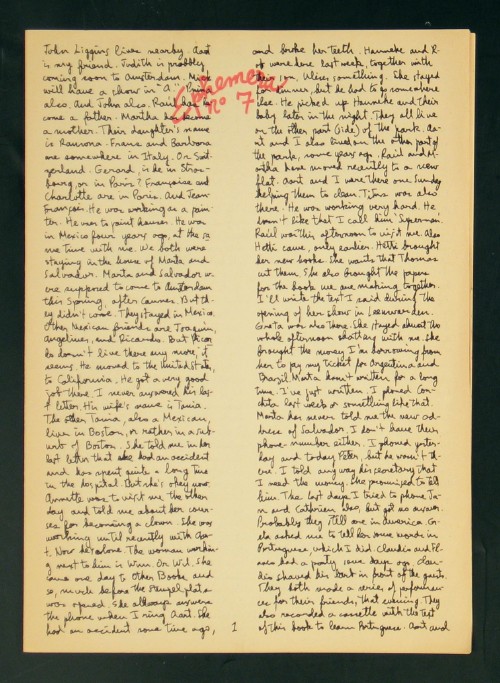 John Liggins lives nearby. Aart
is my friend. Judith is probbly
coming soon to Amsterdam. Mick
will have a show in "A". Ulises
also. And John also. Raul has be
come a father. Martha has become
a mother. Their daughter's name
is Ramona. Franz and Barbara
are somewhere in Italy. Or Swit
zerland. Gerard, is he in Stras-
bourg, or in Paris? Françoise and
Charlotte are in Paris. And Jean
François. He was working as a pain-
ter. He was to paint houses. He was
in Mexico four years ago, at the sa
me time with me. We both were
staying in the house of Marta and
Salvador. Marta and Salvador w-
ere supposed to come to Amsterdam
this Spring, after Cannes. But th-
ey didn't come. They stayed in Mexico.
Other Mexican friends are Joaquin,
Angelines, and Ricardo. But Ricar
do doesn't live there any more, it
seems. He moved to the United States,
to California. He got a very good
job there. I never answered his las-
t letter. His wife's name is Tania.
The other Tania, also a Mexican,
lives in Boston, or rather in a sub-
urb of Boston. She told me in her
last letter that she had an accident
and has spent quite a long time
in the hospital. But she's okay now.
Annette was to visit me the other
day and told me about her cour-
ses for becoming a clown. She was
working until recently with Aar-
t. Now he's alone. The woman workin-
g next to him is Wim. Or Wil. She
came one day to Other Books and
so, much before the Pempelfiets
was opened. She allways answers
the phone when I ring Aart. She
had an accident some time ago,
1
and broke her teeth. Hanneke and R-
were here last week, together with
their son, Ulises something. She stayed
for dinner, but he had to go somewhere
else. He picked up Hanneke and their
baby later in the night. They all live
on the other part (side) of the park. Aa-
rt and I also lived on the other part of
the park, some years ago. Raul and M-
artha have moved recently to a new
flat. Aart and I were there one Sunday
helping them to clean. Tjinse was also
there. He was working very hard. He
doesn't like that I call him Superman.
Raul was this afternoon to visit me. Also
Hetti came, only earlier. Hetti brought
her new books. She wants that Thomas
cut them. She also brought the papers
for the book we are making together.
I'll write the text I said during the
opening of her show in Leeuwarden.
Greta was also there. She stayed almost the
whole afternoon chatting with me. She
brought the money I'm borrowing from
her to pay my ticket for Argentina and
Brazil. Marta hasn't written for a long
time. I've just written. I phoned Con-
chita last week or something like that.
Marta has never told me the new ad-
dress of Salvador. I don't have their
phone number either. I phoned yester-
day and today Peter, but he wasn't th-
ere. I told any way his secretary that
I need the money. She promised to tell
him. The last days I tried to phone Ja-
n and Cathrien also, but got no answer.
Probably they still are in America. G-
reta asked me to tell her some words in
Portuguese, which I did. Claudio and Fl-
had a party some days ago. Clau-
dio shaved his beard in front of the guests.
They both made a series of performan-
ces for their friends, that evening. They
also recorded a cassette with the text
of this book to learn Portuguese. Aart and
Ephemera
nº 7